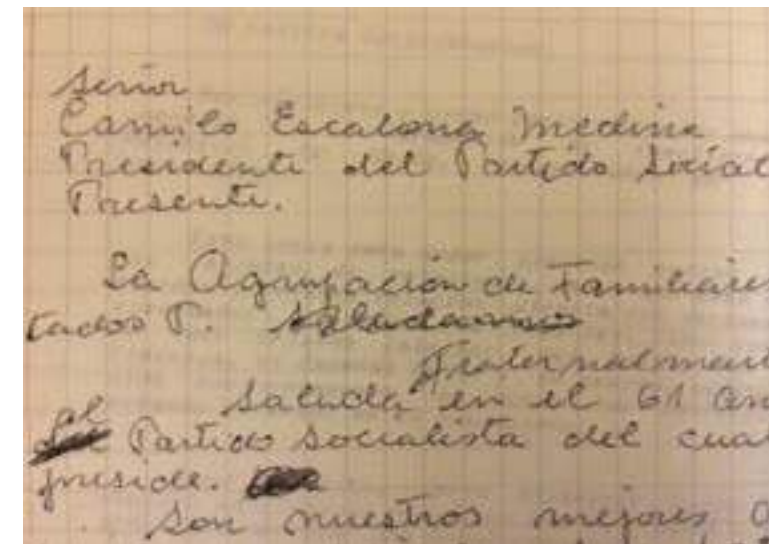 Señor
Camilo Escalona Medina
Presidente del Partido Social
Presente.
La Agrupación de Familiares
tados P. Saludamos
Fraternalment
al saluda en el 61 an
Partido Socialista del cual
preside.
Son nuestros mejores